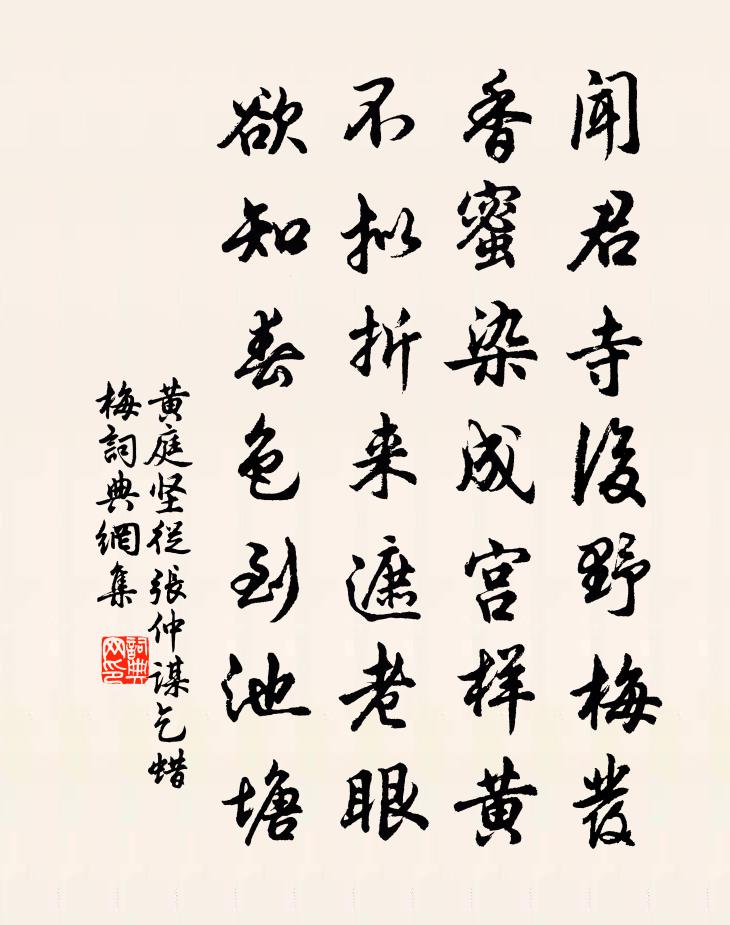 闻君寺後野梅發
香蜜染成宫样黄
不拟折来遮老眼
欲知春色到池塘
黄庭坚從張仲謀乞蜡
梅詞典網集
詞典
网印